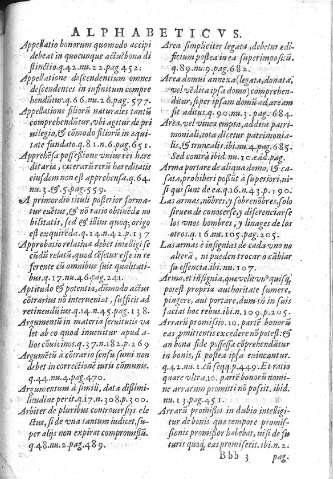 ALPHABETICVS.
Appellatio bonorum quomodo accipi
debeat in quocunque actu & bona di
stinctio. q. 42. nu. 22. pag. 452.
Appellatione descendentium omnes
descendentes in infinitum compre
hendūtur. q. 66. nu. 26. pag. 577.
Appellations filiorū naturales tantū
comprehenduntur, vbi agitur de pri
uilegio, & cōmodo filiorū in equi
tate fundato. q. 81. n. 6. pag. 651.
Apprehēsa possessione vnius rei here
ditariæ, cæterarū rerū hæreditatis
eiusdem non est apprehensa. q. 64.
nu. 3. & 5. pag. 559.
A primordio tituli posterior forma-
tur euētus, & nō ratio obtinēda no
bilitatis, sed & illius quoq; origo
est exquirēda. q. 14. n. 42. p. 137
Approbatio relatiua debet intelligi se
cūdū relata, quod cēsetur esse in re
ferente cū omnibus suis qualitati-
bus. q. 17. nu. 46. pag. 241.
Aptitudo & potentia, dūmodo actus
cōtrarius nō interueniat, sufficit ad
retinendū ius. q. 14. n. 45. pag. 138.
Argumentū in materia seruitutis va
let ab eo quod inuenitur apud al-
bos ciuicos. q. 37. nu. 182. p. 269
Argumētū à cōtrario sensu sumi non
debet in correctione iuris cōmunis
q. 44. nu. 4. pag. 470.
Argumentum à simili, data dissimi-
litudine perit. q. 17. n. 308. p. 300.
Arbiter de pluribus controuersiis ele
ctus, si de vna tantum iudicet, su-
per alijs non expirat compromissū.
q. 48. nu. 2. pag. 489.
Area simpliciter legata, debetur edi
ficium postea in ea superimpositū.
q. 89. nu. 9. pag. 682.
Area domui annexa (legata, donata,
vel vēdita ipsa domo) comprehen-
ditur, si per ipsam domū ad aream
sit aditus. q. 90. nu. 3. pag. 684.
Area, vel vinea empta, addita patri-
moniali, tota dicetur patrimonia-
lis, & truncalis. ibi. nu. 4. pag. 685.
Sed contrà ibid. nu. 10. ead. pag.
Arma portare de aliqua domo, & ca-
sata, prohiberi possūt à superiori, ni-
si qui sunt de ea. q. 16. n. 43. p. 190.
Las armas, nōbres, y sobrenōbres, solo
siruen de conoscerse, y diferenciarse
los vnos hombres, y linages de los
otros. q. 16. nu. 105. pag. 205.
Las armas è insignias de cada vno no
alterā, ni pueden trocar o cābiar
su essencia. ibi. nu. 107.
Armus, et insignia, quæ vult vnusquisq;
potest propria authoritate sumere,
pingere, aut portare, dum tñ in suis
faciat hoc rebus. ibi. n. 109. p. 205.
Arrarū promissio. 10. partē bonorū
eas promittentis excedere nō potest, &
an bona fide possessa cōprehendātur
in bonis, si postea ipsa euincantur.
q. 42. nu. 1. cū seqq. p. 449. Et ratio
quare vltra. 10. partē bonorū nomi-
ne arrarum promitti nō possit, ibid.
nu. 13. pag. 451.
Arrarū promissio in dubio intelligi-
tur de bonis, quæ tempore promis-
sionis promissor habebat, nisi de fu-
turis quoq; eas promiserit. ibi. n. 2.
Bbb 3
pag.